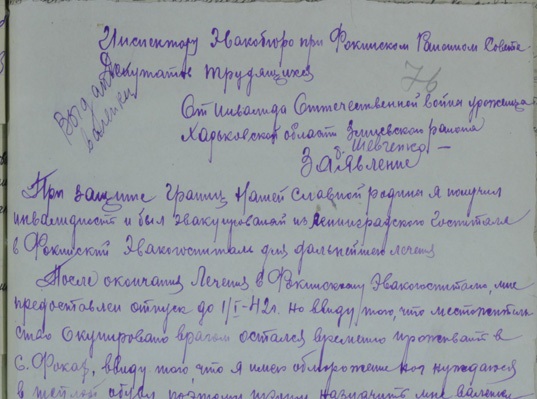 Инспектору Эвакобюро при Фокинском Районном Совете
Депутатов трудящихся
76
Выдать
валенки
От инвалида Отечественной войны урожен
Харьковской области Змиевского района
Шевченко —
Заявление
При защите границ нашей славной родины я получил
инвалидность и был эвакуированой из Ленинградского госпиталя
в Фокинский Эвакогоспиталь для дальнейшего лечения
После окончания Лечения в Фокинскому Эвакогоспиталю, мне
предоставлен отпуск до 1/I-42г. но ввиду того, что местожитель
ство окупировано врагом остался временно проживать в
с. Фоках, ввиду того что я имею обморожение ног нуждаюся
в теплой обуви поэтому прошу назначить мне валенки